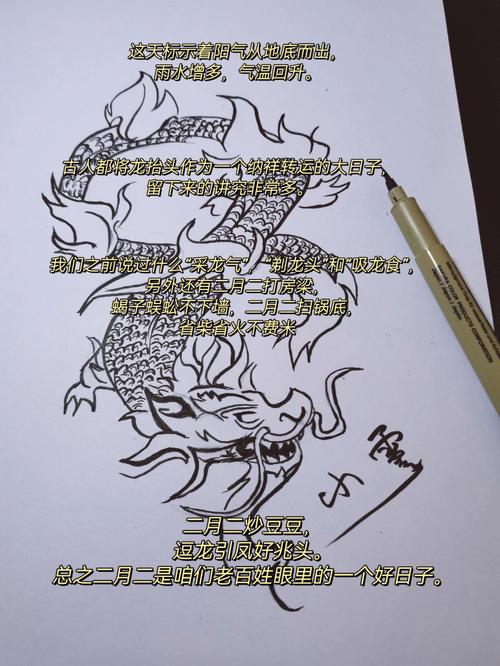 这天标示着阳气从地底而出，
雨水增多，气温回升。
古人都将龙抬头作为一个纳祥转运的大日子，
留下来的讲究非常多。
我们之前说过什么“采龙气”，“剃龙头”和“吸龙食”，
另外还有二月二打房梁，
蝎子蜈蚣不下墙，二月二扫锅底，
省柴省火不费米
二月二炒豆豆，
逗龙引凤好兆头。
总之二月二是咱们老百姓眼里的一个好日子。